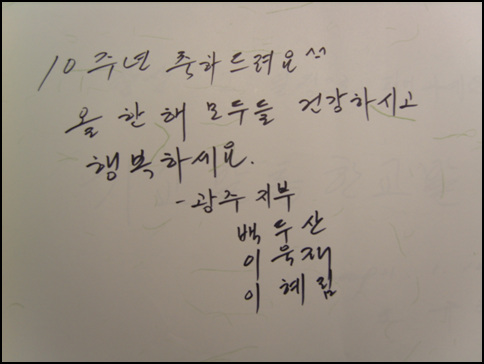 10주년 축하드려요^^
올 한해 모두들 건강하시고
행복하세요.
- 광주지부
백두산
이욱재
이혜림